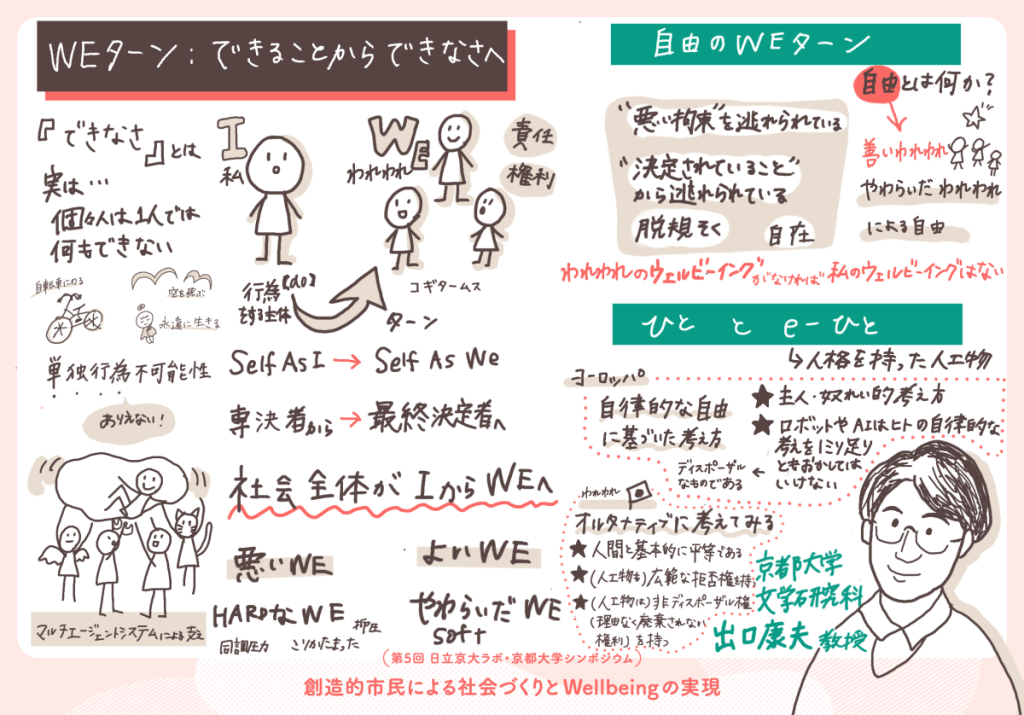 WEターン:できることからできなさへ
『できなさ』とは
実は…
個々人は1人では
何もできない
自転車にのる
空を飛ぶ
永遠に生きる
単独行為不可能性
ありえない!
マルチエージェントシステムによる支え
I
私
WE
われわれ
責任
権利
行為【do】
をする主体
コギタームス
ターン
Self As I → Self As We
専決者から → 最終決定者へ
社会全体がIからWEへ
悪いWE
よいWE
HARDなWE
抑圧
同調圧力
こりかたまった
やわらいだWE
soft
自由のWEターン
"悪い拘束"を逃れられている
"決定されていること"
から逃れられている
脱規そく
自在
自由とは何か?
善いわれわれ
やわらいだ われわれ
による自由
われわれのウェルビーイングがなければ私のウェルビーイングはない
ひと と e-ひと
↳人格を持った人工物
ヨーロッパ
自律的な自由
に基づいた考え方
★主人・奴れい的考え方
★ロボットやAIはヒトの自律的な
考えをミリ足り
ともおかしては
いけない
ディスポーザル
なものである
←
われわれ
オルタナティブに考えてみる
★人間と基本的に平等である
★(人工物も)広範な拒否権を持つ
★(人工物は)非ディスポーザル権
(理由なく廃棄されない
権利)を持つ
京都大学
文学研究科
出口康夫 教授
(第5回 日立京大ラボ・京都大学シンポジウム)
創造的市民による社会づくりとWellbeingの実現